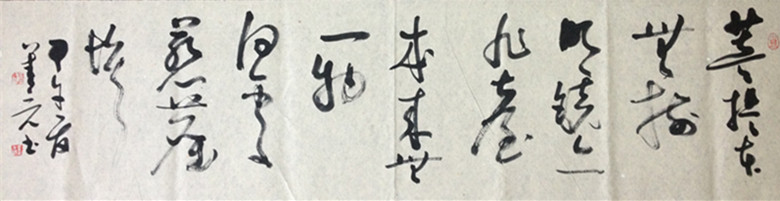 菩提本
無樹
明鏡亦
非臺
本来無
一物
何處
惹塵
埃
甲午
元书